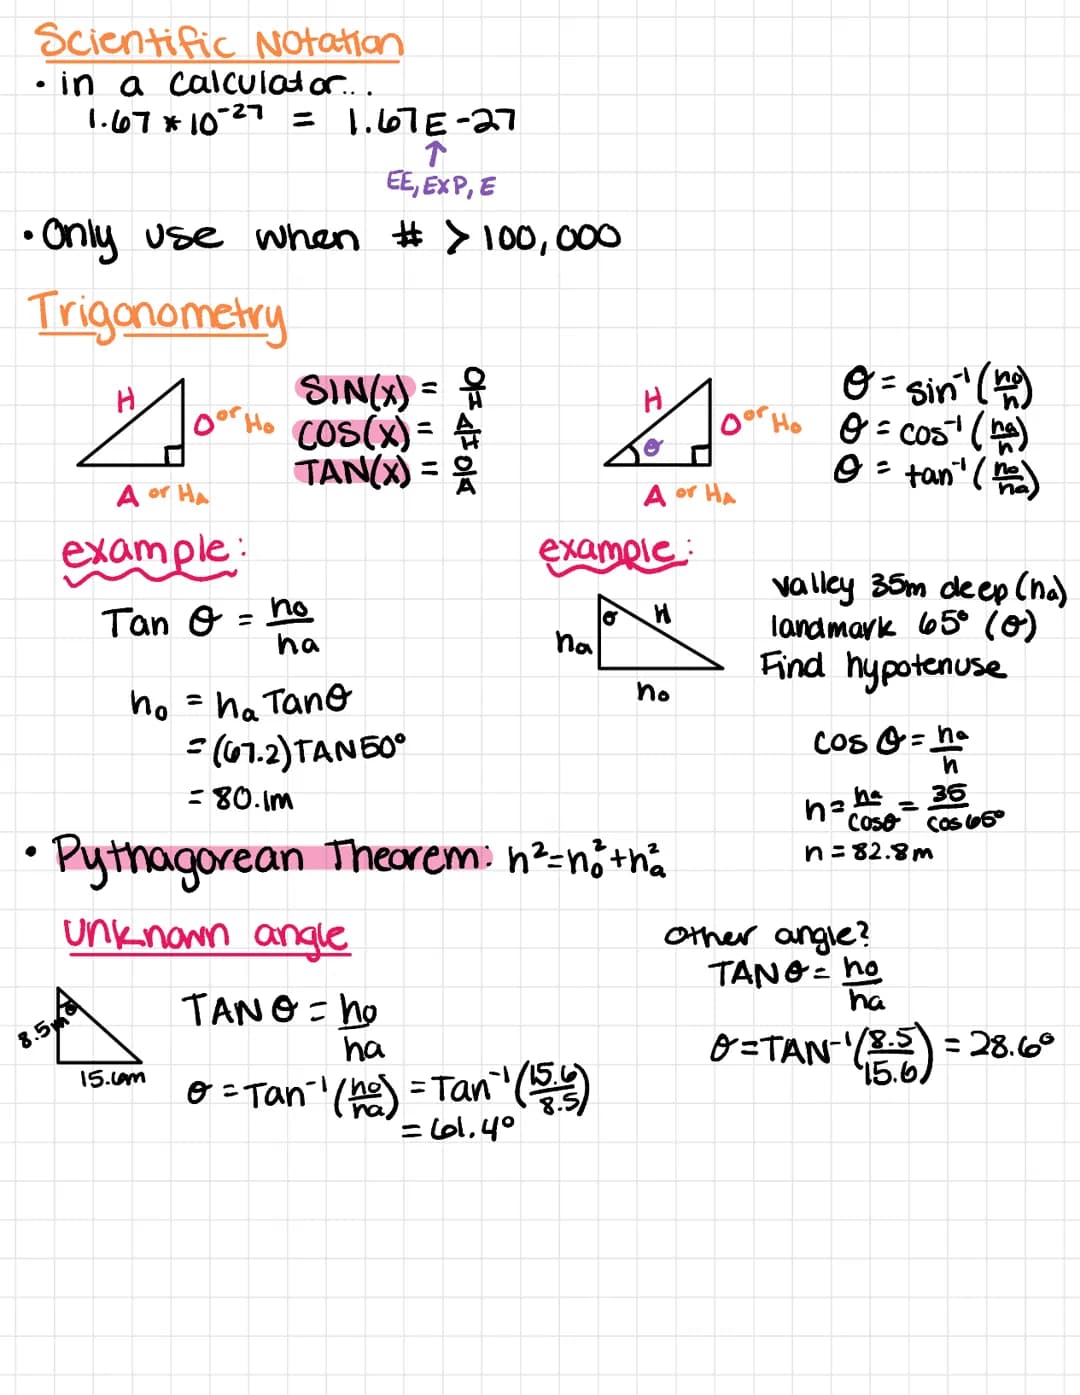 Scientific Notation
• in a calculator...
1.67 * 10⁻²⁷ = 1.67E-27
↑
EE, EXP, E
• Only use when # > 100,000
Trigonometry
H
O or Ho
A or HA
SIN(x) = O/H
COS(x) = A/H
TAN(x) = O/A
H
θ
O or Ho
A or HA
θ = sin⁻¹(ho/h)
θ = cos⁻¹(ha/h)
θ = tan⁻¹(ho/ha)
example:
Tan θ = ho/ha
ho = ha Tanθ
= (67.2)TAN50°
= 80.1m
example:
θ
H
ha
ho
valley 35m deep (ha)
landmark 65° (θ)
Find hypotenuse
cos θ = ha/h
h = ha/cosθ = 35/cos65°
h = 82.8m
• Pythagorean Theorem: h²=ho²+ha²
unknown angle
8.5m
θ
15.6m
TAN θ = ho/ha
θ = Tan⁻¹(ho/ha) = Tan⁻¹(15.6/8.5)
= 61.4°
other angle?
TANθ = ho/ha
θ=TAN⁻¹(8.5/15.6) = 28.6°